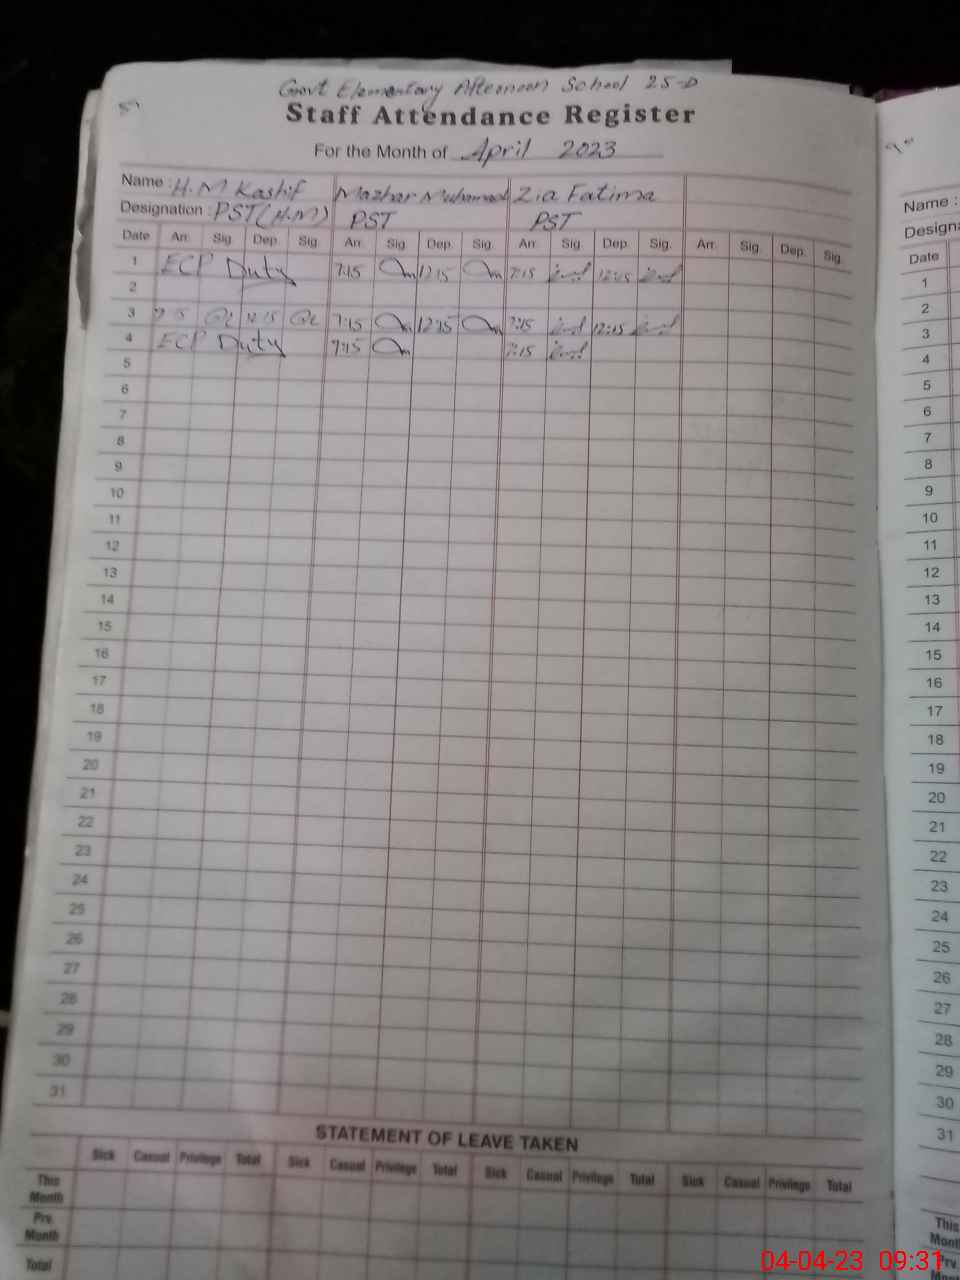 Govt Elementary Afternoon School 25-D
Staff Attendance Register
For the Month of April 2023
Name : H.M Kashif Mazhar Muhammad Zia Fatima
Designation : PST (H.M) PST PST
Date Arr. Sig. Dep. Sig. Arr. Sig. Dep. Sig. Arr. Sig. Dep. Sig. Arr. Sig. Dep. Sig.
1 ECP Duty 7:15 12:15 7:15 12:15
2
3 7:15 12:15 7:15 12:15 7:15 12:15
4 ECP Duty 7:15 7:15
5
6
7
8
9
10
11
12
13
14
15
16
17
18
19
20
21
22
23
24
25
26
27
28
29
30
31
STATEMENT OF LEAVE TAKEN
Sick Casual Privilege Total Sick Casual Privilege Total Sick Casual Privilege Total Sick Casual Privilege Total
This Month
Prv. Month
Total
Name :
Design
Date
1
2
3
4
5
6
7
8
9
10
11
12
13
14
15
16
17
18
19
20
21
22
23
24
25
26
27
28
29
30
31
This
Mont
Prv
04-04-23 09:31